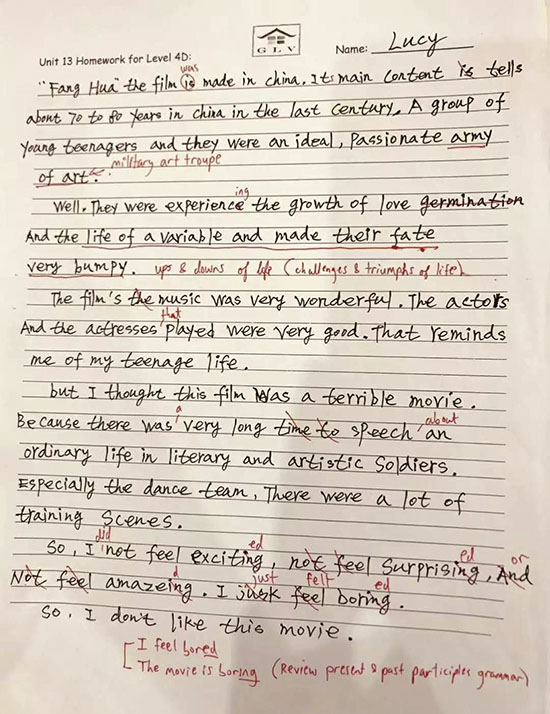 GLV
Unit 13 Homework for Level 4D: Name: Lucy
was
"Fang Hua" the film is made in china. Its main content is tells
about 70 to 80 years in China in the last century. A group of
young teenagers and they were an ideal, Passionate army
of art. military art troupe
ing
Well. They were experience the growth of love germination
And the life of a variable and made their fate
very bumpy. ups & downs of life (challenges & triumphs of life)
The film's the music was very wonderful. The actors
that
And the actresses played were very good. That reminds
me of my teenage life.
but I thought this film was a terrible movie.
a about
Because there was very long time to speech an
ordinary life in literary and artistic soldiers.
Especially the dance team, There were a lot of
training scenes.
did ed ed or
So, I not feel exciting, not feel surprising, And
d just felt ed
Not feel amazeing. I jusk feel boring.
So, I don't like this movie.
I feel bored
The movie is boring (Review present & past participles grammar)